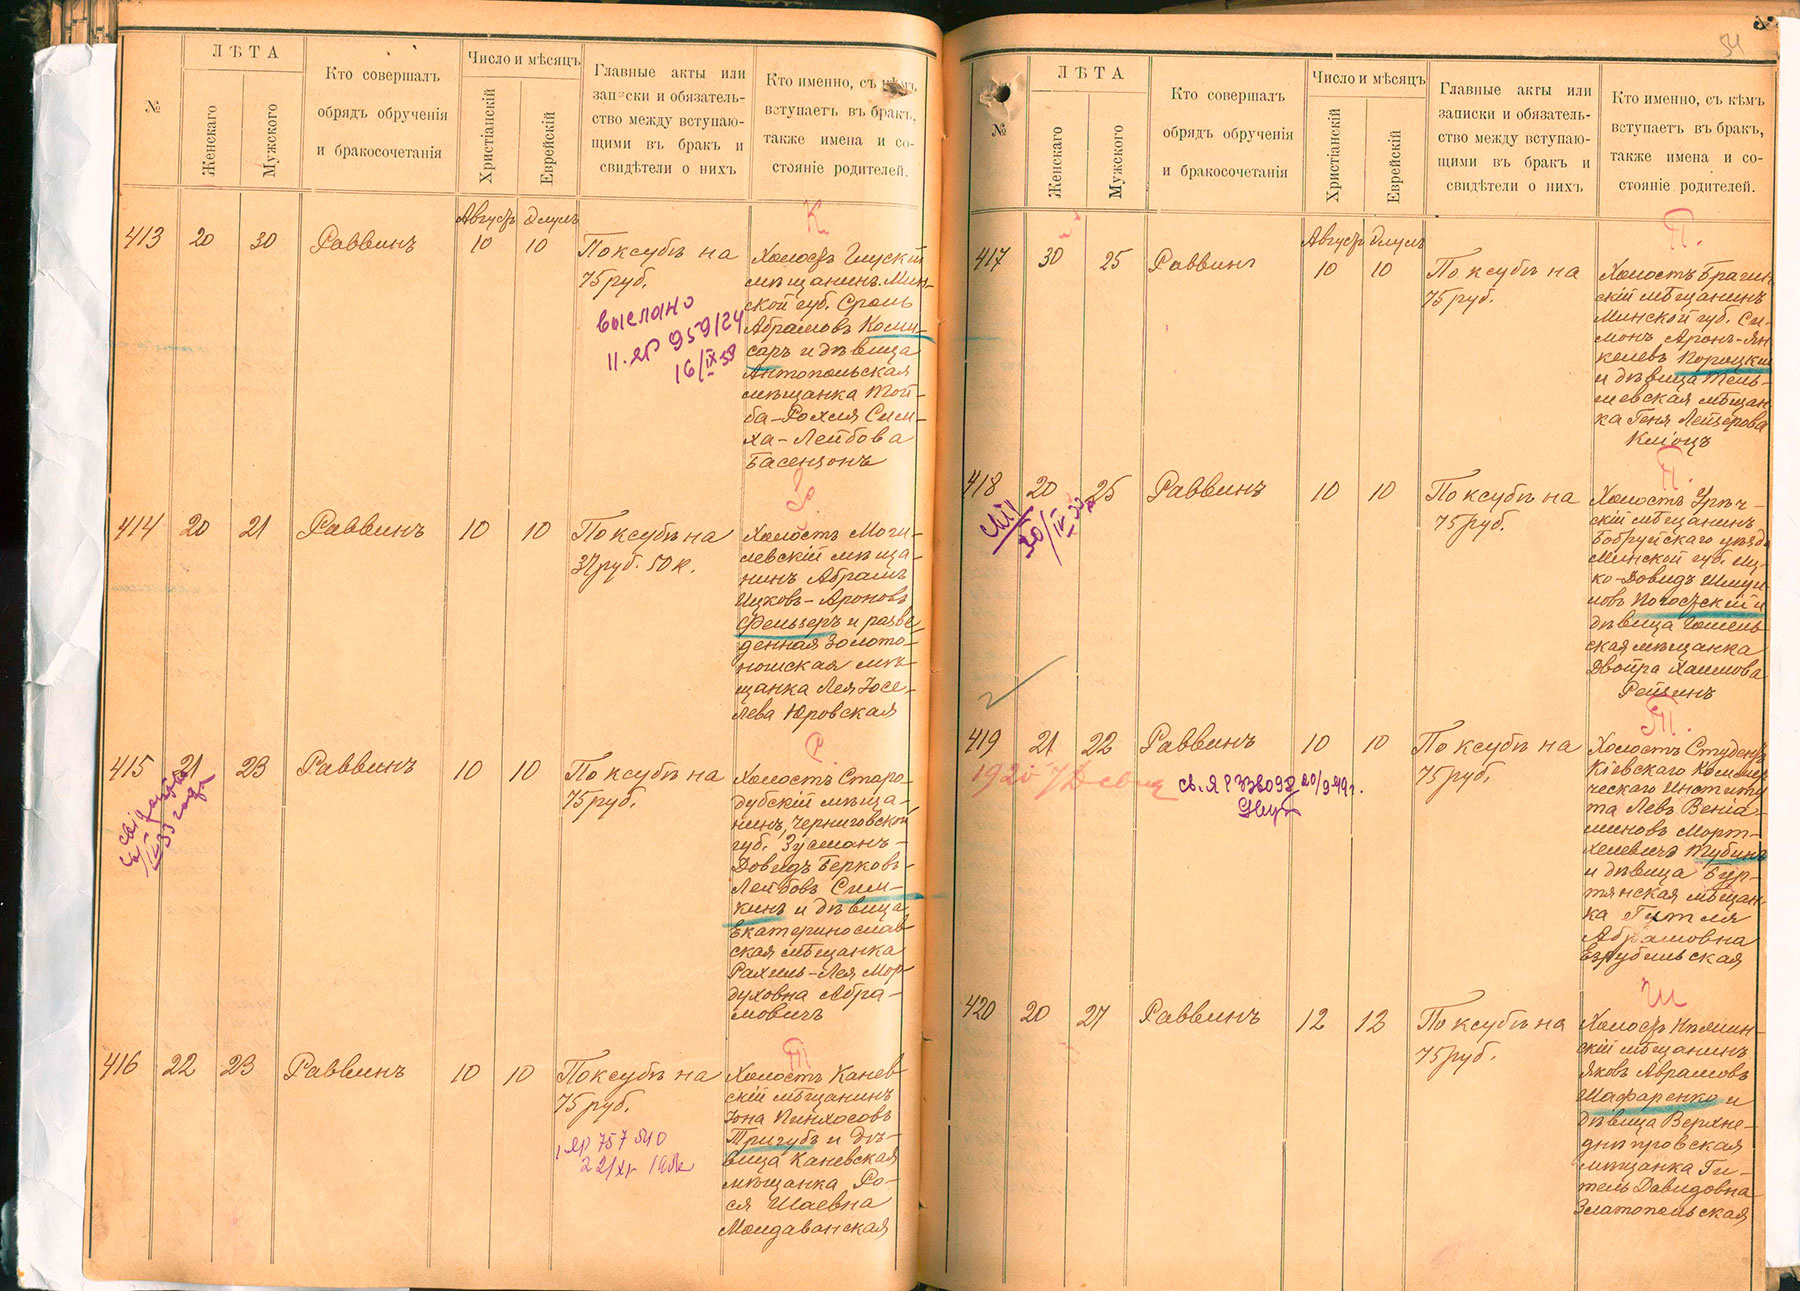 №
ЛѢТА
Женскаго
Мужского
Кто совершалъ
обрядъ обрученія
и бракосочетанія
Число и мѣсяцъ
Христіанскій
Еврейскій
Главные акты или
записки и обязатель-
ство между вступаю-
щими въ бракъ и
свидѣтели о нихъ
Кто именно, съ кѣмъ
вступаетъ въ бракъ,
также имена и со-
стояніе родителей.
К.
413
20
30
Раввинъ
Августъ
10
Элулъ
10
По ксубѣ на
75 руб.
выслано
16/IX 58
Холостъ Глускій
мѣщанинъ Мин-
ской губ. Сроль
Абрамовъ Коми-
саръ и дѣвица
Антопольская
мѣщанка Той-
ба-Рохля Сим-
ха-Лейбова
Басенцонъ
414
20
21
Раввинъ
10
10
По ксубѣ на
37 руб. 50 к.
Холостъ Моги-
левскій мѣща-
нинъ Абрамъ
Ицковъ-Ароновъ
Фельзеръ и разве-
денная Золото-
ношская мѣ-
щанка Лея Іосе-
лева Юровская
415
21
23
Раввинъ
10
10
По ксубѣ на
75 руб.
Р.
Холостъ Старо-
дубскій мѣща-
нинъ, Черниговской
губ. Зусманъ-
Довидъ Берковъ-
Лейбовъ Сим-
кинъ и дѣвица
Екатеринослав
ская мѣщанка
Рахиль-Лея Мор
духовна Абра-
мовичъ
416
22
23
Раввинъ
10
10
По ксубѣ на
75 руб.
Т.
Холостъ Канев
скій мѣщанинъ
Іона Пинхосовъ
Тригубъ и дѣ-
вица Каневская
мѣщанка Ро-
ся Шаевна
Молдаванская
54
№
ЛѢТА
Женскаго
Мужского
Кто совершалъ
обрядъ обрученія
и бракосочетанія
Число и мѣсяцъ
Христіанскій
Еврейскій
Главные акты или
записки и обязатель-
ство между вступаю-
щими въ бракъ и
свидѣтели о нихъ
Кто именно, съ кѣмъ
вступаетъ въ бракъ,
также имена и со-
стояніе родителей.
П.
417
30
25
Раввинъ
Августъ
10
Элулъ
10
По ксубѣ на
75 руб.
Холостъ Брагин
скій мѣщанинъ
Минской губ. Си-
монъ Аронъ-Ян
келевъ Порецкій
и дѣвица Тель-
шевская мѣщан
ка Геня Лейзерова
Кліоцъ
П.
418
20
25
Раввинъ
10
10
По ксубѣ на
75 руб.
Холостъ Урѣч-
скій мѣщанинъ
Бобруйскаго уѣзда
Минской губ. Иц-
ко-Довидъ Шмуй
ловъ Погостскій и
дѣвица Гомель-
ская мѣщанка
Двойра Хаимова
Рейзинъ
Т.
419
21
22
Раввинъ
10
10
По ксубѣ на
75 руб.
20/9-49 г.
Холостъ Студентъ
Кіевскаго Коммер
ческаго Институ
та Левъ Веніа-
миновъ Морт-
хелевичъ Тубинъ
и дѣвица Бур-
тянская мѣщан-
ка Гитля
Абрамовна
Езрубильская
Ш
420
20
27
Раввинъ
12
12
По ксубѣ на
75 руб.
Яковъ Авраамовъ
Шафаренко и
дѣвица Верхне-
днѣпровская
мѣщанка Ги-
тель Давидовна
Златопольская